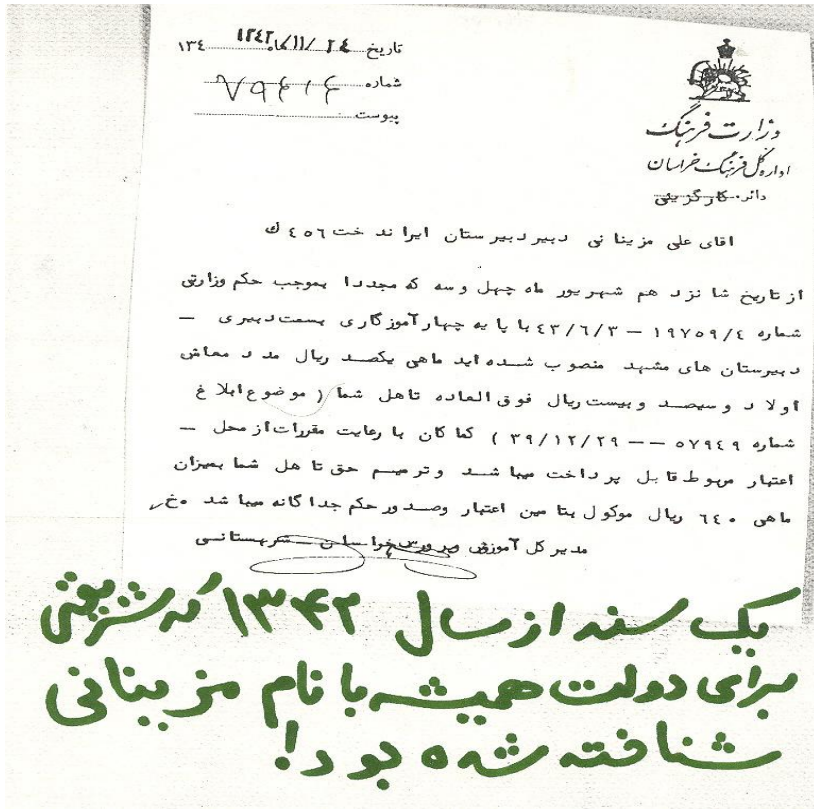 تاریخ ۲۴/۱۱/ماه ۱۳۴۲ ۱۳۴
شماره ۷۹۴۱۴
پیوست
وزارت فرهنگ
اداره کل فرهنگ خراسان
دائره کارگزینی
اقای علی مزینانی دبیر دبیرستان ایراندخت ٤٥٦ ك
از تاریخ شانزدهم شهریور ماه چهل وسه که مجددا بموجب حکم وزارتی
شماره ١٩٧٥٩/٤ – ٤٣/٦/٣ با پایه چهار آموزگاری بسمت دبیری –
دبیرستان های مشهد منصوب شده اید ماهی یکصد ریال مدد معاش
اولاد وسیصد وبیست ریال فوق العاده تاهل شما ( موضوع ابلاغ
شماره ٥٧٩٤٩ –– ٣٩/١٢/٢٩ ) کما کان با رعایت مقررات از محل –
اعتبار مربوط قابل پرداخت میباشد وترمیم حق تاهل شما بمیزان
ماهی ٦٤٠ ریال موکول بتامین اعتبار وصدور حکم جداگانه میباشد ۰خ
مدیر کل آموزش وپرورش خراسان – شهرستانی
یک سند از سال ۱۳۴۲ که شریعتی
برای دولت همیشه با نام مزینانی
شناخته شده بود!